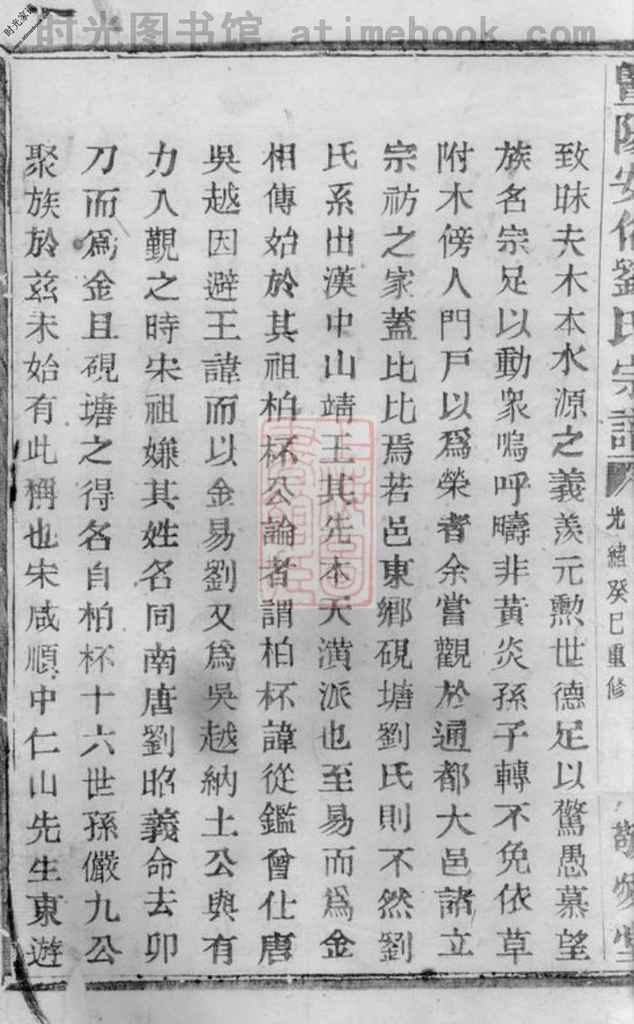 时光图书馆 atimebook.com
时光家谱
暨陽安俗劉氏宗譜
光緒癸巳重修
致昧夫木本水源之義羨元勲世德足以驚愚慕望
族名宗足以動衆嗚呼疇非黃炎孫子轉不免依草
附木傍人門戸以爲榮者余嘗觀於通都大邑諸立
宗祊之家蓋比比焉若邑東鄉硯塘劉氏則不然劉
氏系出漢中山靖王其先本天潢派也至易而爲金
相傳始於其祖柏杯公論者謂柏杯諱從鑑曾仕唐
吳越因避王諱而以金易劉又爲吳越納土公與有
力入覲之時宋祖嫌其姓名同南唐劉昭義命去卯
刀而爲金且硯塘之得名自柏杯十六世孫儼九公
聚族於茲未始有此稱也宋咸順中仁山先生東遊